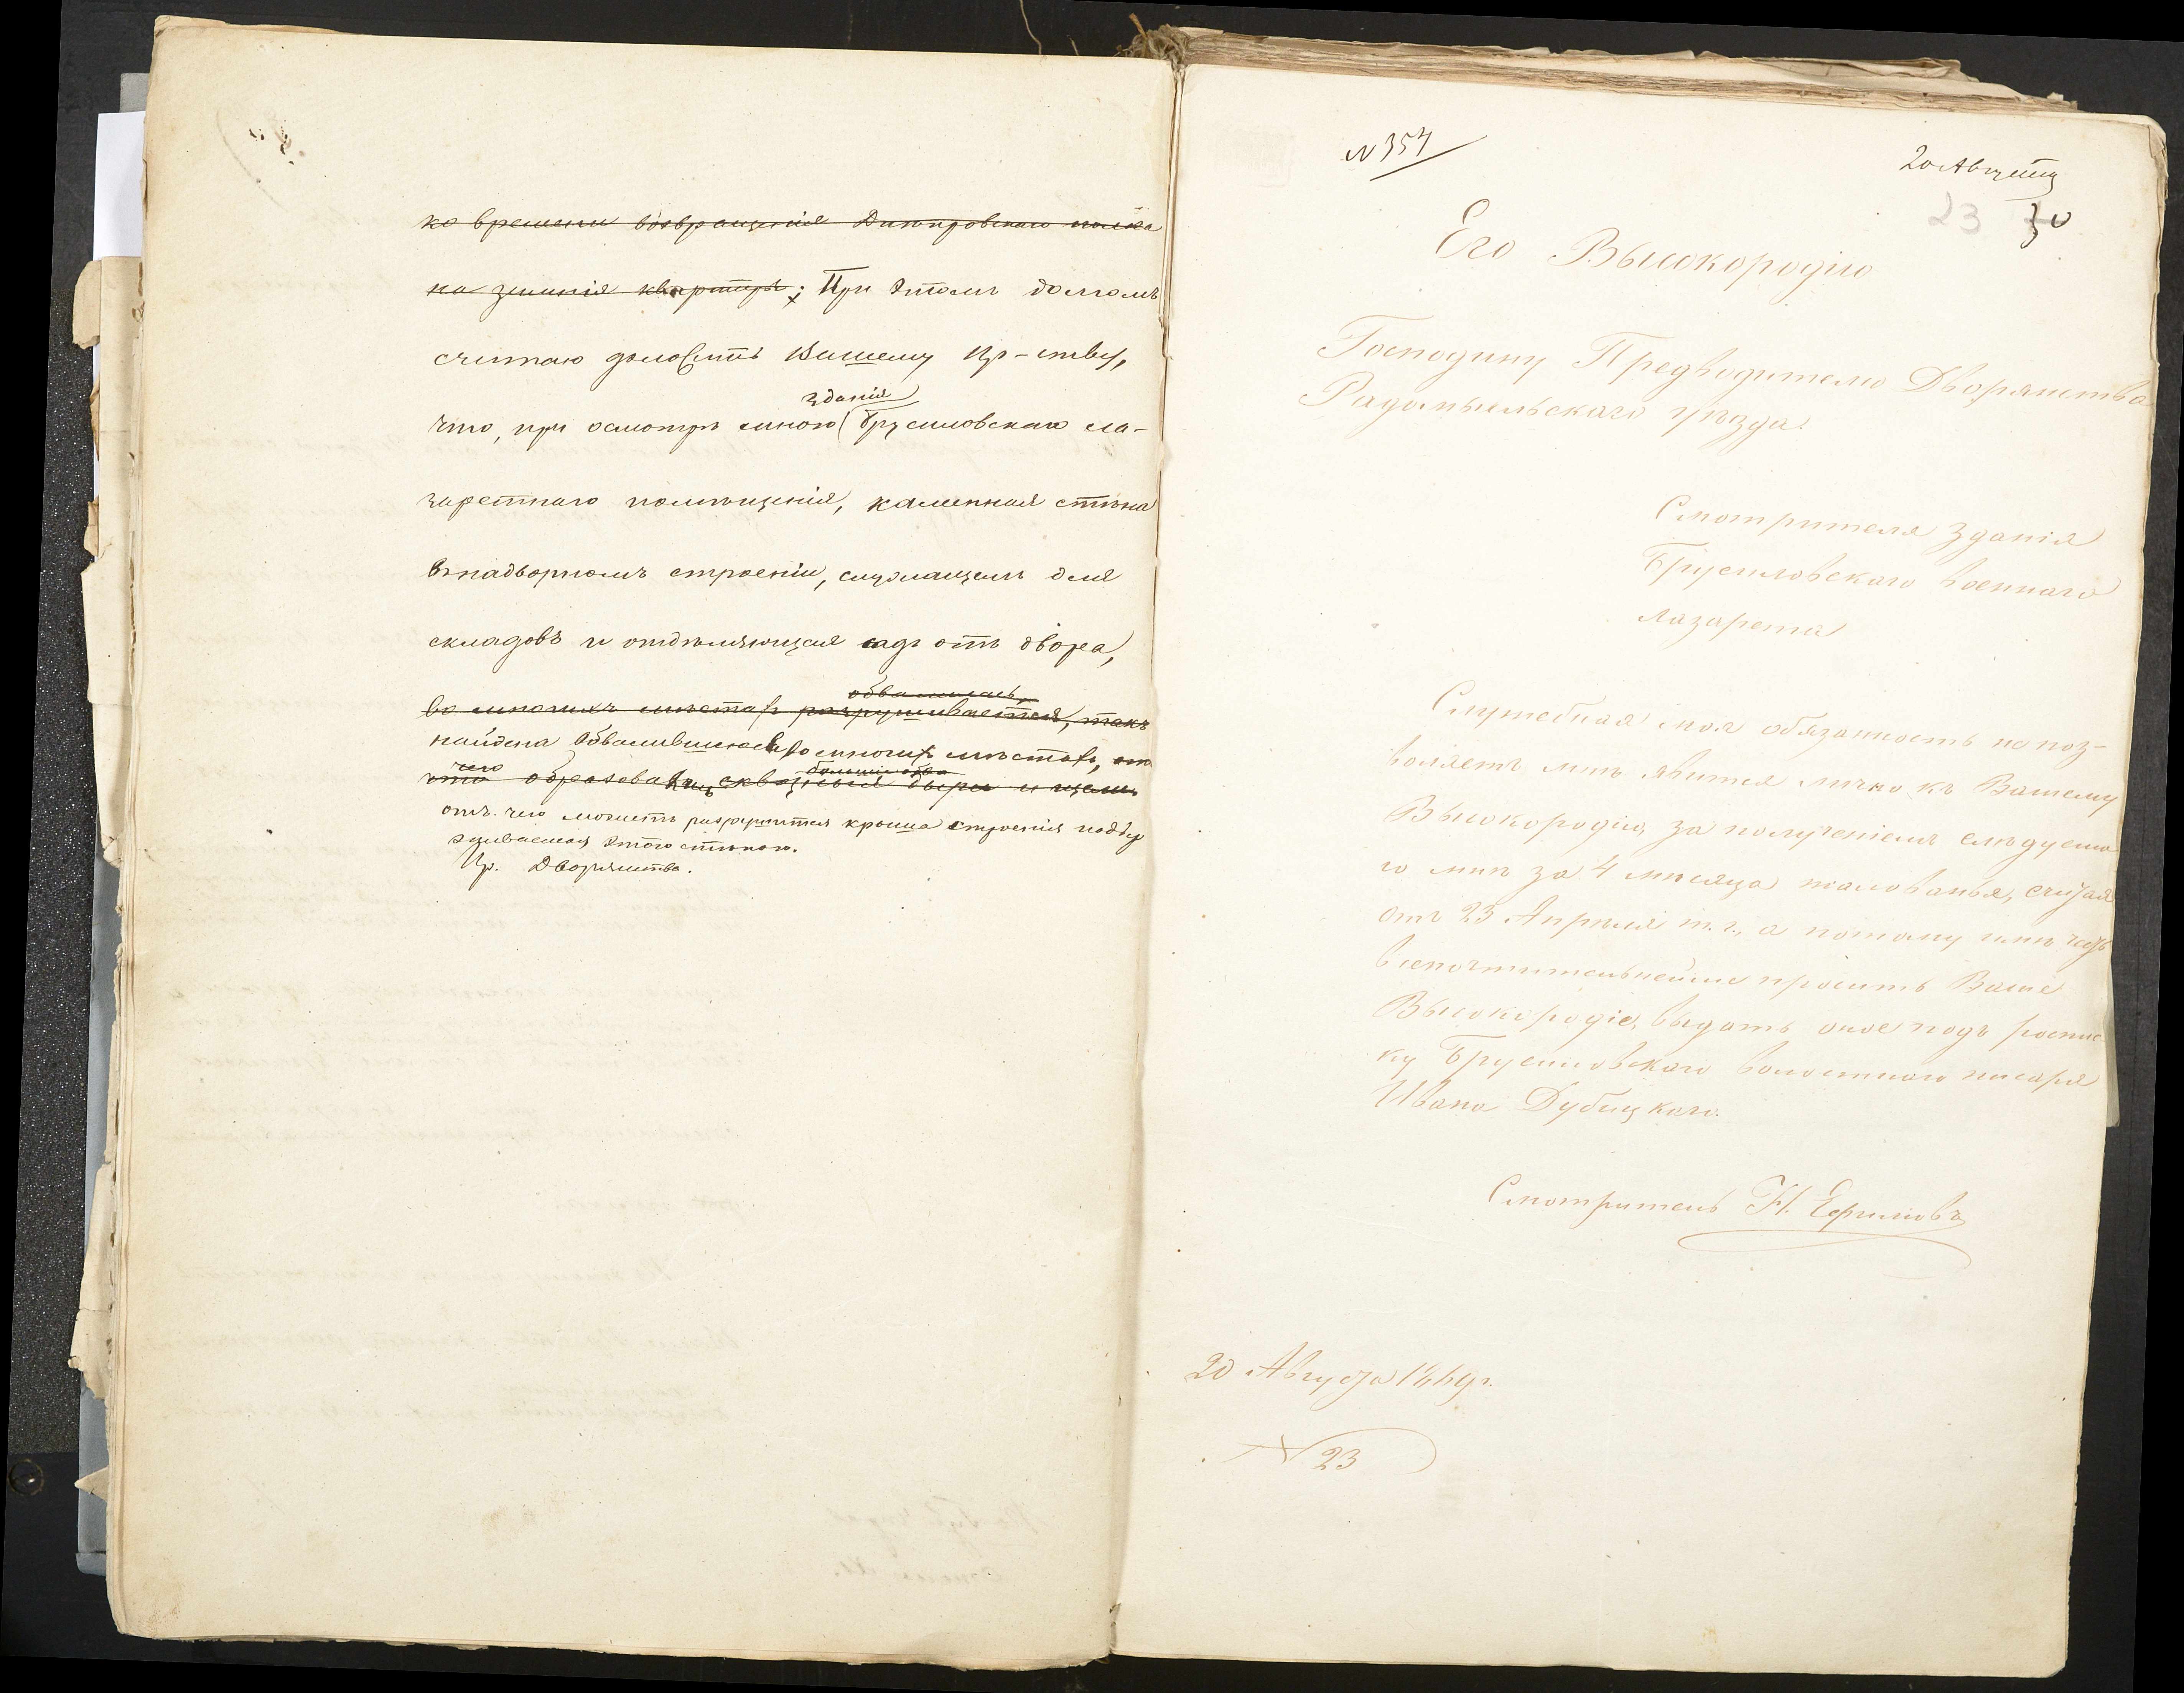 ко времени возвращенія Днѣпровскаго полка
на зимнія квартиры; При этомъ долгомъ
считаю доложить Вашему Пр-ству,
зданія
что, при осмотрѣ мною Брусиловскаго ла-
заретнаго помѣщенія, каменная стѣна
в надворномъ строеніи, служащемъ для
складовъ и отдѣляющая садъ отъ двора,
обвалилась,
во многихъ мѣстахъ разрушивается, такъ
найдена обвалившеюся во многихъ мѣстахъ, отъ
чего
что образовались сквозныя дыры и щели
отъ чего можетъ разрушится крыша строенія поддер
живаемая этою стѣною.
Пр. Дворянства.
№ 354
20 Августа
23 30
Его Высокородію
Господину Предводителю Дворянства
Радомысльскаго уѣзда.
Смотрителя зданія
Брусиловскаго военнаго
лазарета
Служебная моя обязанность не поз-
воляетъ мнѣ явится лично къ Вашему
Высокородію, за полученіемъ слѣдуема
го мнѣ за 4 мѣсяца жалованья, считая
отъ 23 Апрѣля т. г., а потому имѣю честь
всепочтительнейше просить Ваше
Высокородіе, выдать оное подъ роспис
ку Брусиловскаго волостнаго писаря
Ивана Дубицкаго.
Смотритель Н. Ефимовъ
20 Августа 1869 г.
№ 23